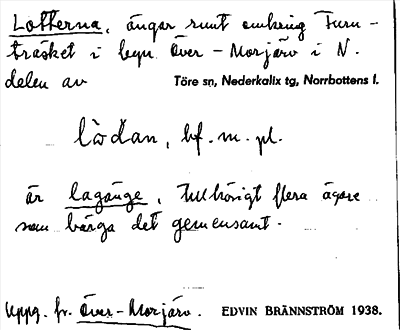 Lotterna, ängar runt omkring Furu-
träsket i byn Över-Morjärv i N.
delen av Töre sn, Nederkalix tg, Norrbottens l.
lòdan, bf. m. pl.
är lagänge, tillhörigt flera ägare
som bärga det gemensamt.
Uppg. fr. Över-Morjärv. EDVIN BRÄNNSTRÖM 1938.